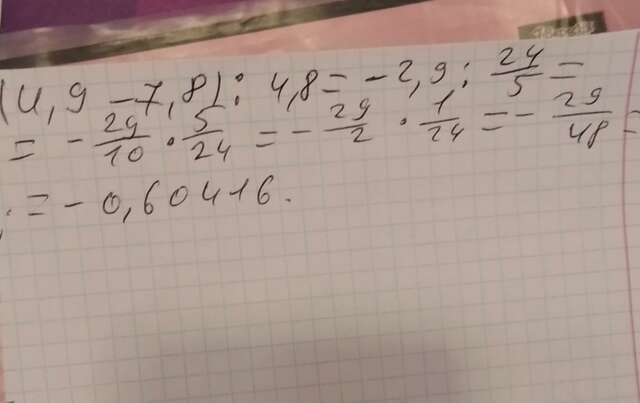 (4,9 -7,8) : 4,8 = -2,9 : 24/5 =
= - 29/10 · 5/24 = - 29/2 · 1/24 = - 29/48 =
= -0,60416.